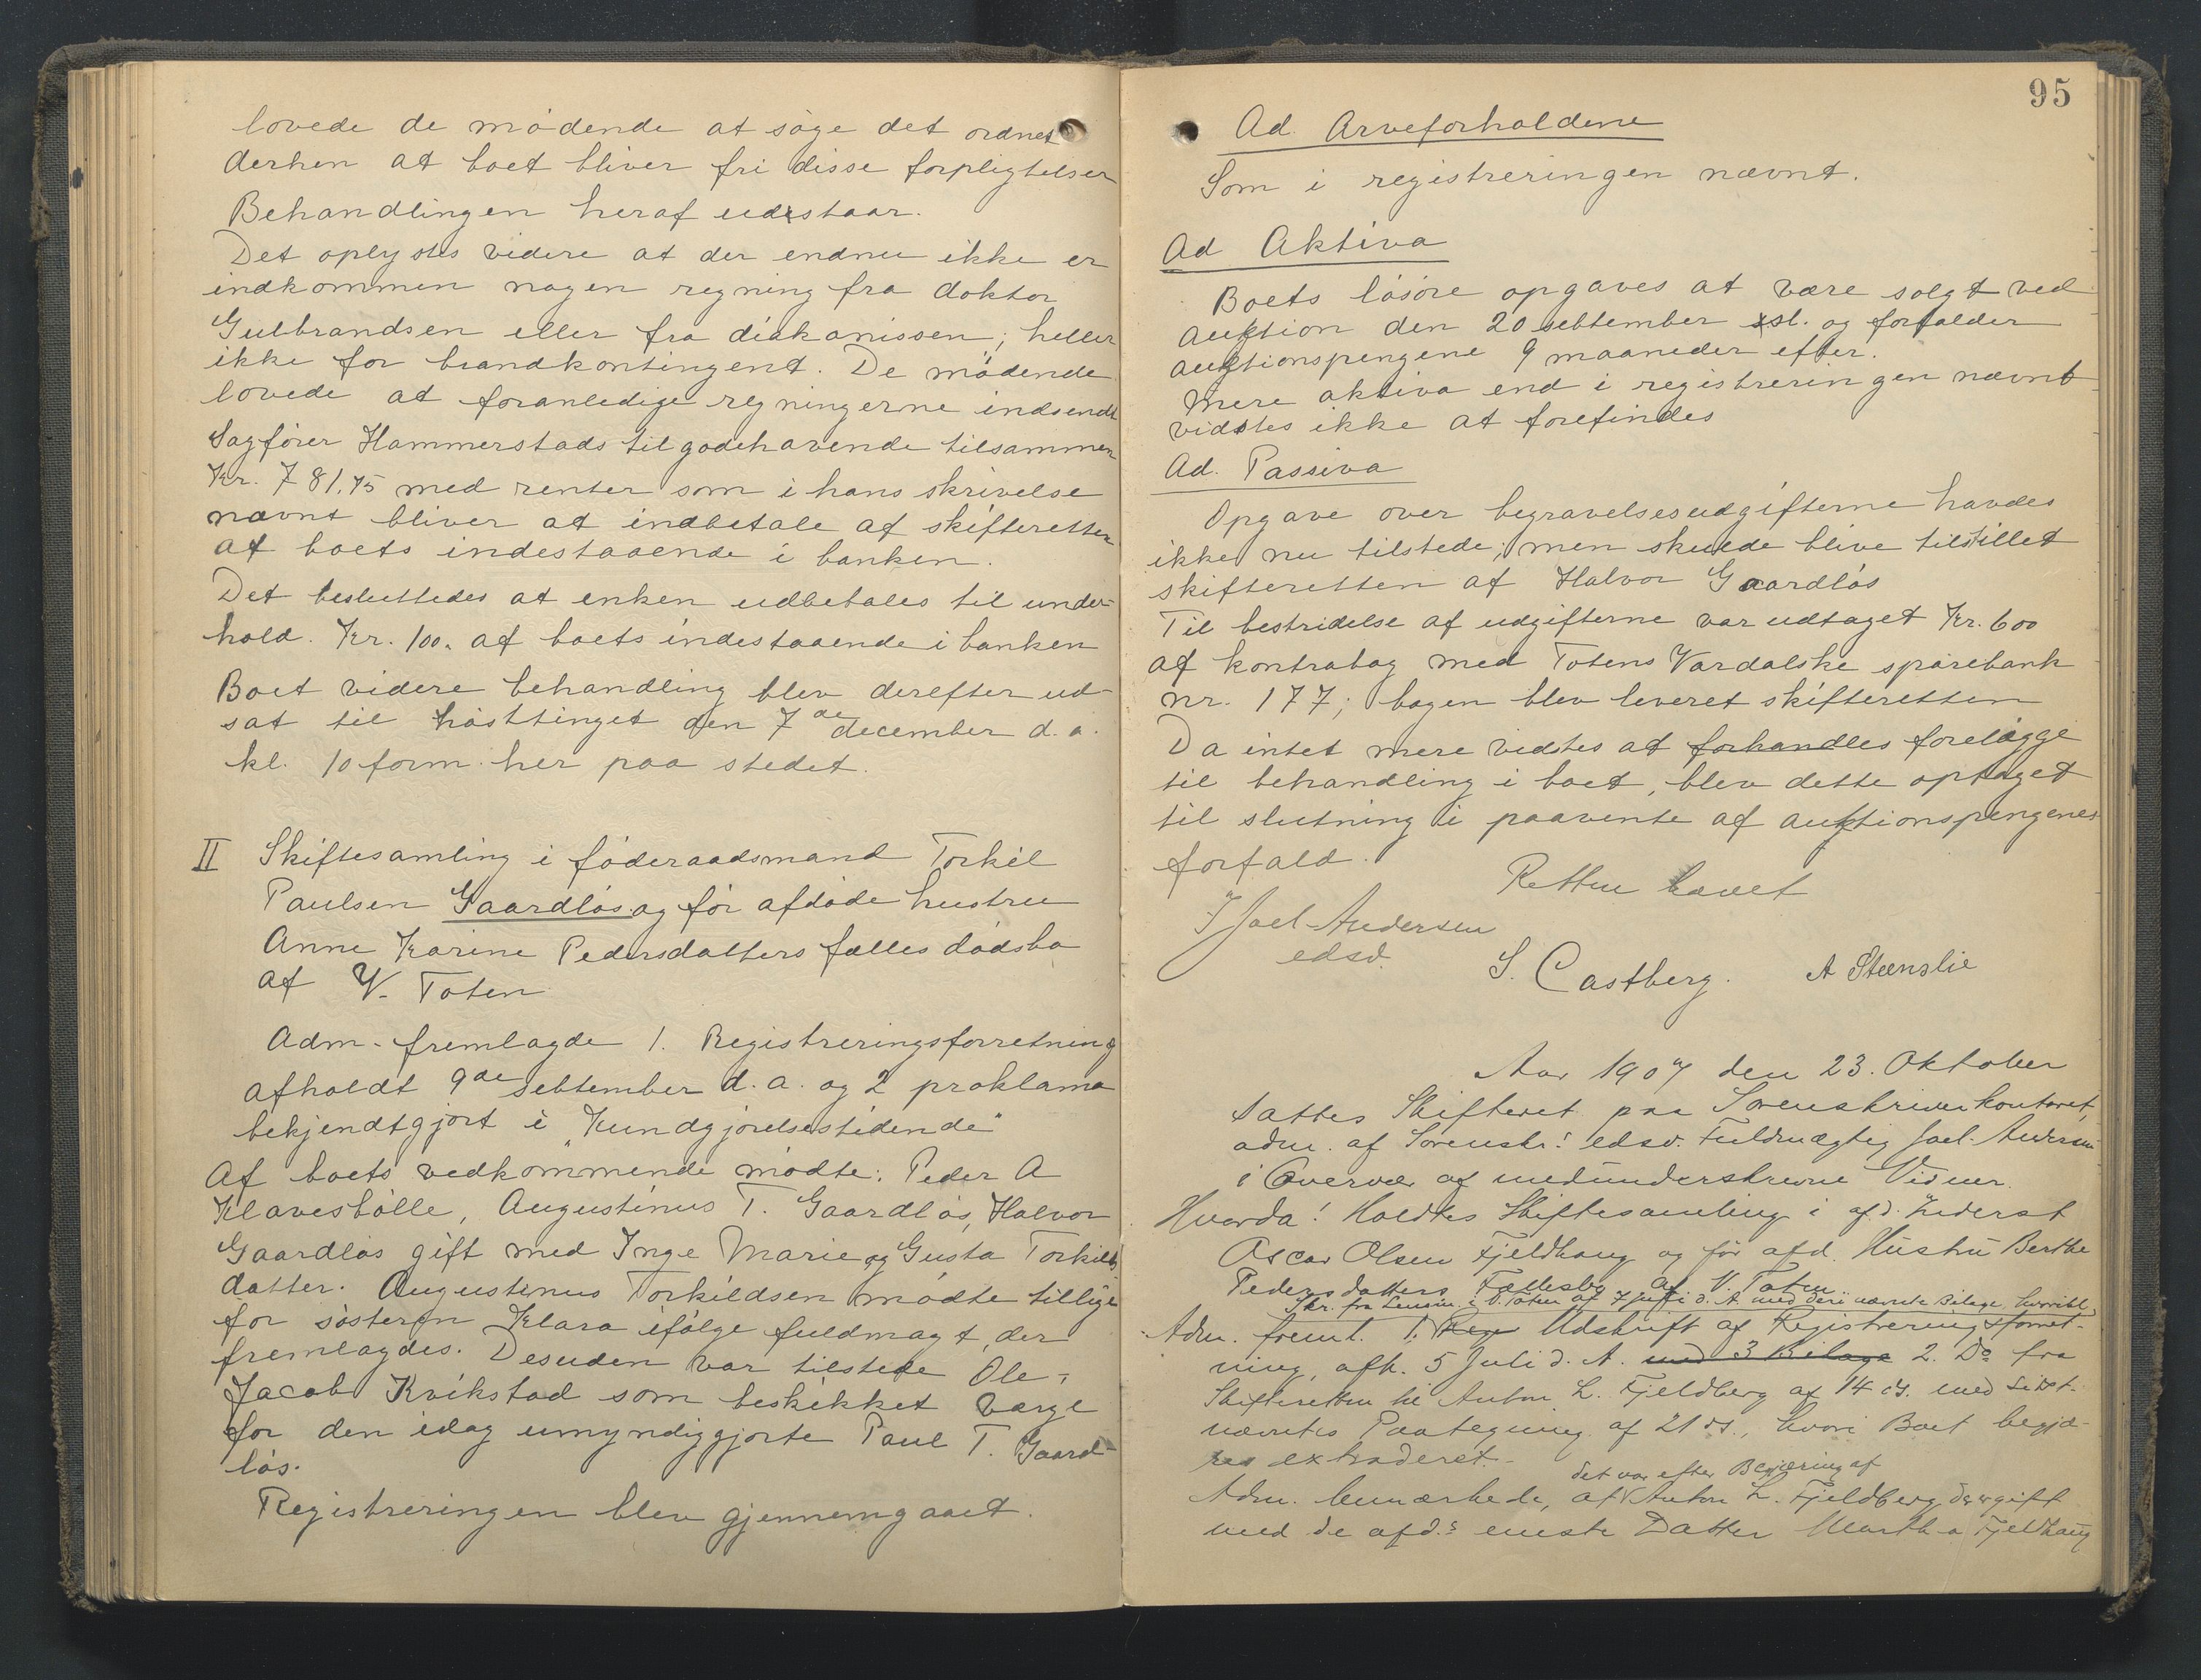 lovede de mødende at søge det ordnet
derhen at boet bliver fri disse forpligtelser
Behandlingen heraf udestaar.
Det oplystes videre at der endnu ikke er
indkommen nogen regning fra doktor
Gulbrandsen eller fra diakonissen; heller
ikke for brandkontingent. De mødende
lovede at foranledige regningerne indsendt
Sagfører Hammerstads tilgodehavende tilsammen
Kr. 781.75 med renter som i hans skrivelse
nævnt bliver at indbetale af skifteretten
af boets indestaaende i banken.
Det besluttedes at enken udbetales til under-
hold. Kr. 100. af boets indestaaende i banken
Boet videre behandling blev derefter ud-
sat til høsttinget den 7de december d. a.
kl. 10 form. her paa stedet.
II Skiftesamling i føderaadsmand Torkil
Paulsen Gaardløs og før afdøde hustru
Anne Karine Pedersdatters fælles dødsbo
af V. Toten
Adm. fremlagde 1. Registreringsforretning
afholdt 9de september d. a. og 2 proklama
bekjendtgjort i "Kundgjørelsestidende"
Af boets vedkommende mødte: Peder A
Klavesbølle, Augustinus T. Gaardløs, Halvor
Gaardløs gift med Inge Marie og Gusta Torkils
datter. Augustinus Torkildsen mødte tillige
for søsteren Klara ifølge fuldmagt, der
fremlagdes. Desuden var tilstede Ole
Jacob Kvikstad som beskikket værge
for den idag umyndiggjorte Paul T. Gaard-
løs.
Registreringen blev gjennemgaaet.
95
Ad. Arveforholdene
Som i registreringen nævnt.
Ad Aktiva
Boets løsøre opgaves at være solgt ved
auktion den 20 september sl. og forfalder
auktionspengene 9 maaneder efter.
Mere aktiva end i registreringen nævnt
vidstes ikke at forefindes
Ad. Passiva
Opgave over begravelsesudgifterne havdes
ikke nu tilstede; men skulde blive tilstillet
skifteretten af Halvor Gaardløs
Til bestridelse af udgifterne var udtaget Kr. 600
af kontrabog med Totens Vardalske sparebank
nr. 177; bogen blev leveret skifteretten
Da intet mere vidstes at forhandles forelægge
til behandling i boet, blev dette optaget
til slutning i paavente af auktionspengenes
forfald.
Retten hævet
Joel Andersen
edsv.
S. Castberg. A Steenslie
Aar 1907 den 23. Oktober
sattes Skifteret paa Sorenskriverkontoret,
adm. af Sorenskr.s edsv. Fuldmægtig Joel Andersen
i Overvær af medunderskrevne Vidner.
Hvorda! Holdtes Skiftesamling i afd. Inderst
Oscar Olsen Fjeldhaug og før afd. Hustru Berthe
Pedersdatters Fællesbo af V. Toten
Skr. fra Lensm. i V. Toten af 7 Juli d. A. med deri nævnte Bilage,
Adm. freml. 1. Reg Udskrift af Registreringsforret-
ning, afh. 5 Juli d. A. med 3 Bilage 2. Do fra
Skifteretten til Anton L. Fjeldberg af 14 ds. med sidst-
nævntes Paategning af 21 ds., hvori Boet begjæ-
res extraderet.
det var efter Begjæring af
Adm. bemærkede, at Anton L. Fjeldberg, der er gift
med de afd.s eneste Datter Martha Fjeldhaug